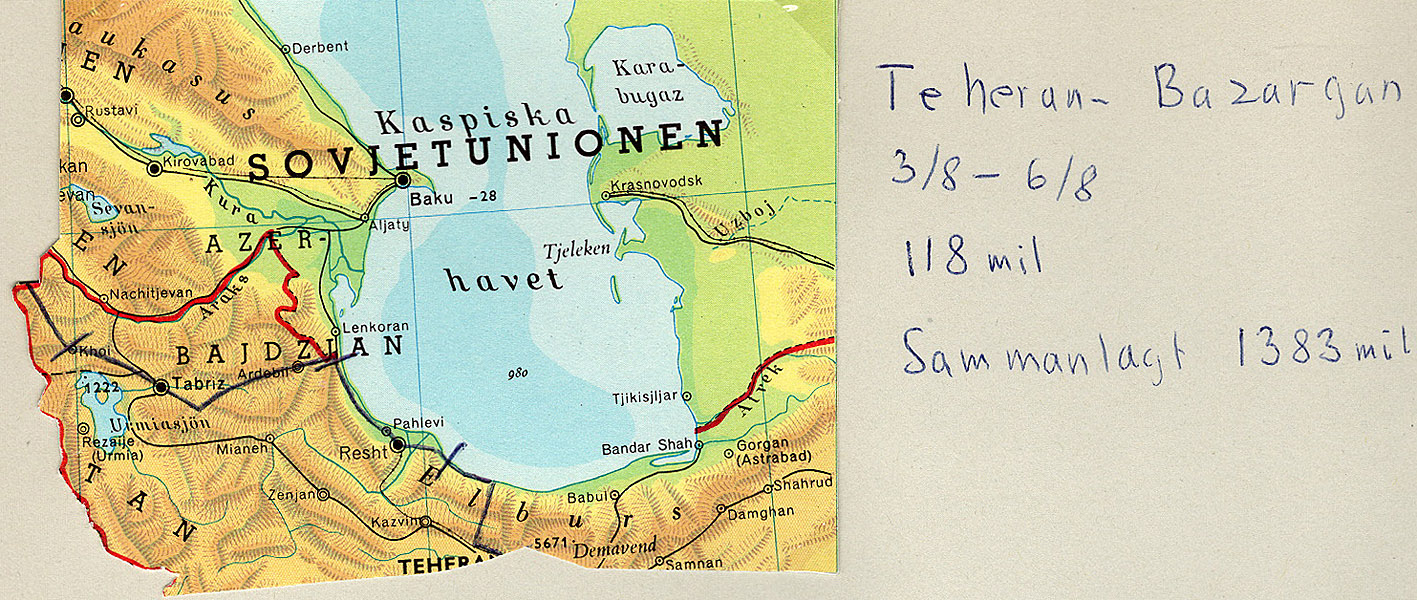 aukasus
IEN
Derbent
Kara-
bugaz
Rustavi
Kaspiska
SOVJETUNIONEN
kan
Kirovabad
evan
Kura
Baku -28
Krasnovodsk
Sevan-
sjön
Aljaty
Uzboj
AZER-
Tjeleken
EN
havet
Nachitjevan
Araks
Lenkoran
Khoi
BAJDZJAN
Ardebil
980
1222
Tabriz
Tjikisjljar
Atrek
Urmiasjön
Pahlevi
Rezaije
(Urmia)
Mianeh
Resht
Bandar Shah
Gorgan
(Astrabad)
TAN
Elburs
Zenjan
Babul
Shahrud
Kazvin
Damghan
5671
Demavend
TEHERAN
Samnan
Teheran - Bazargan
3/8 - 6/8
118 mil
Sammanlagt 1383 mil